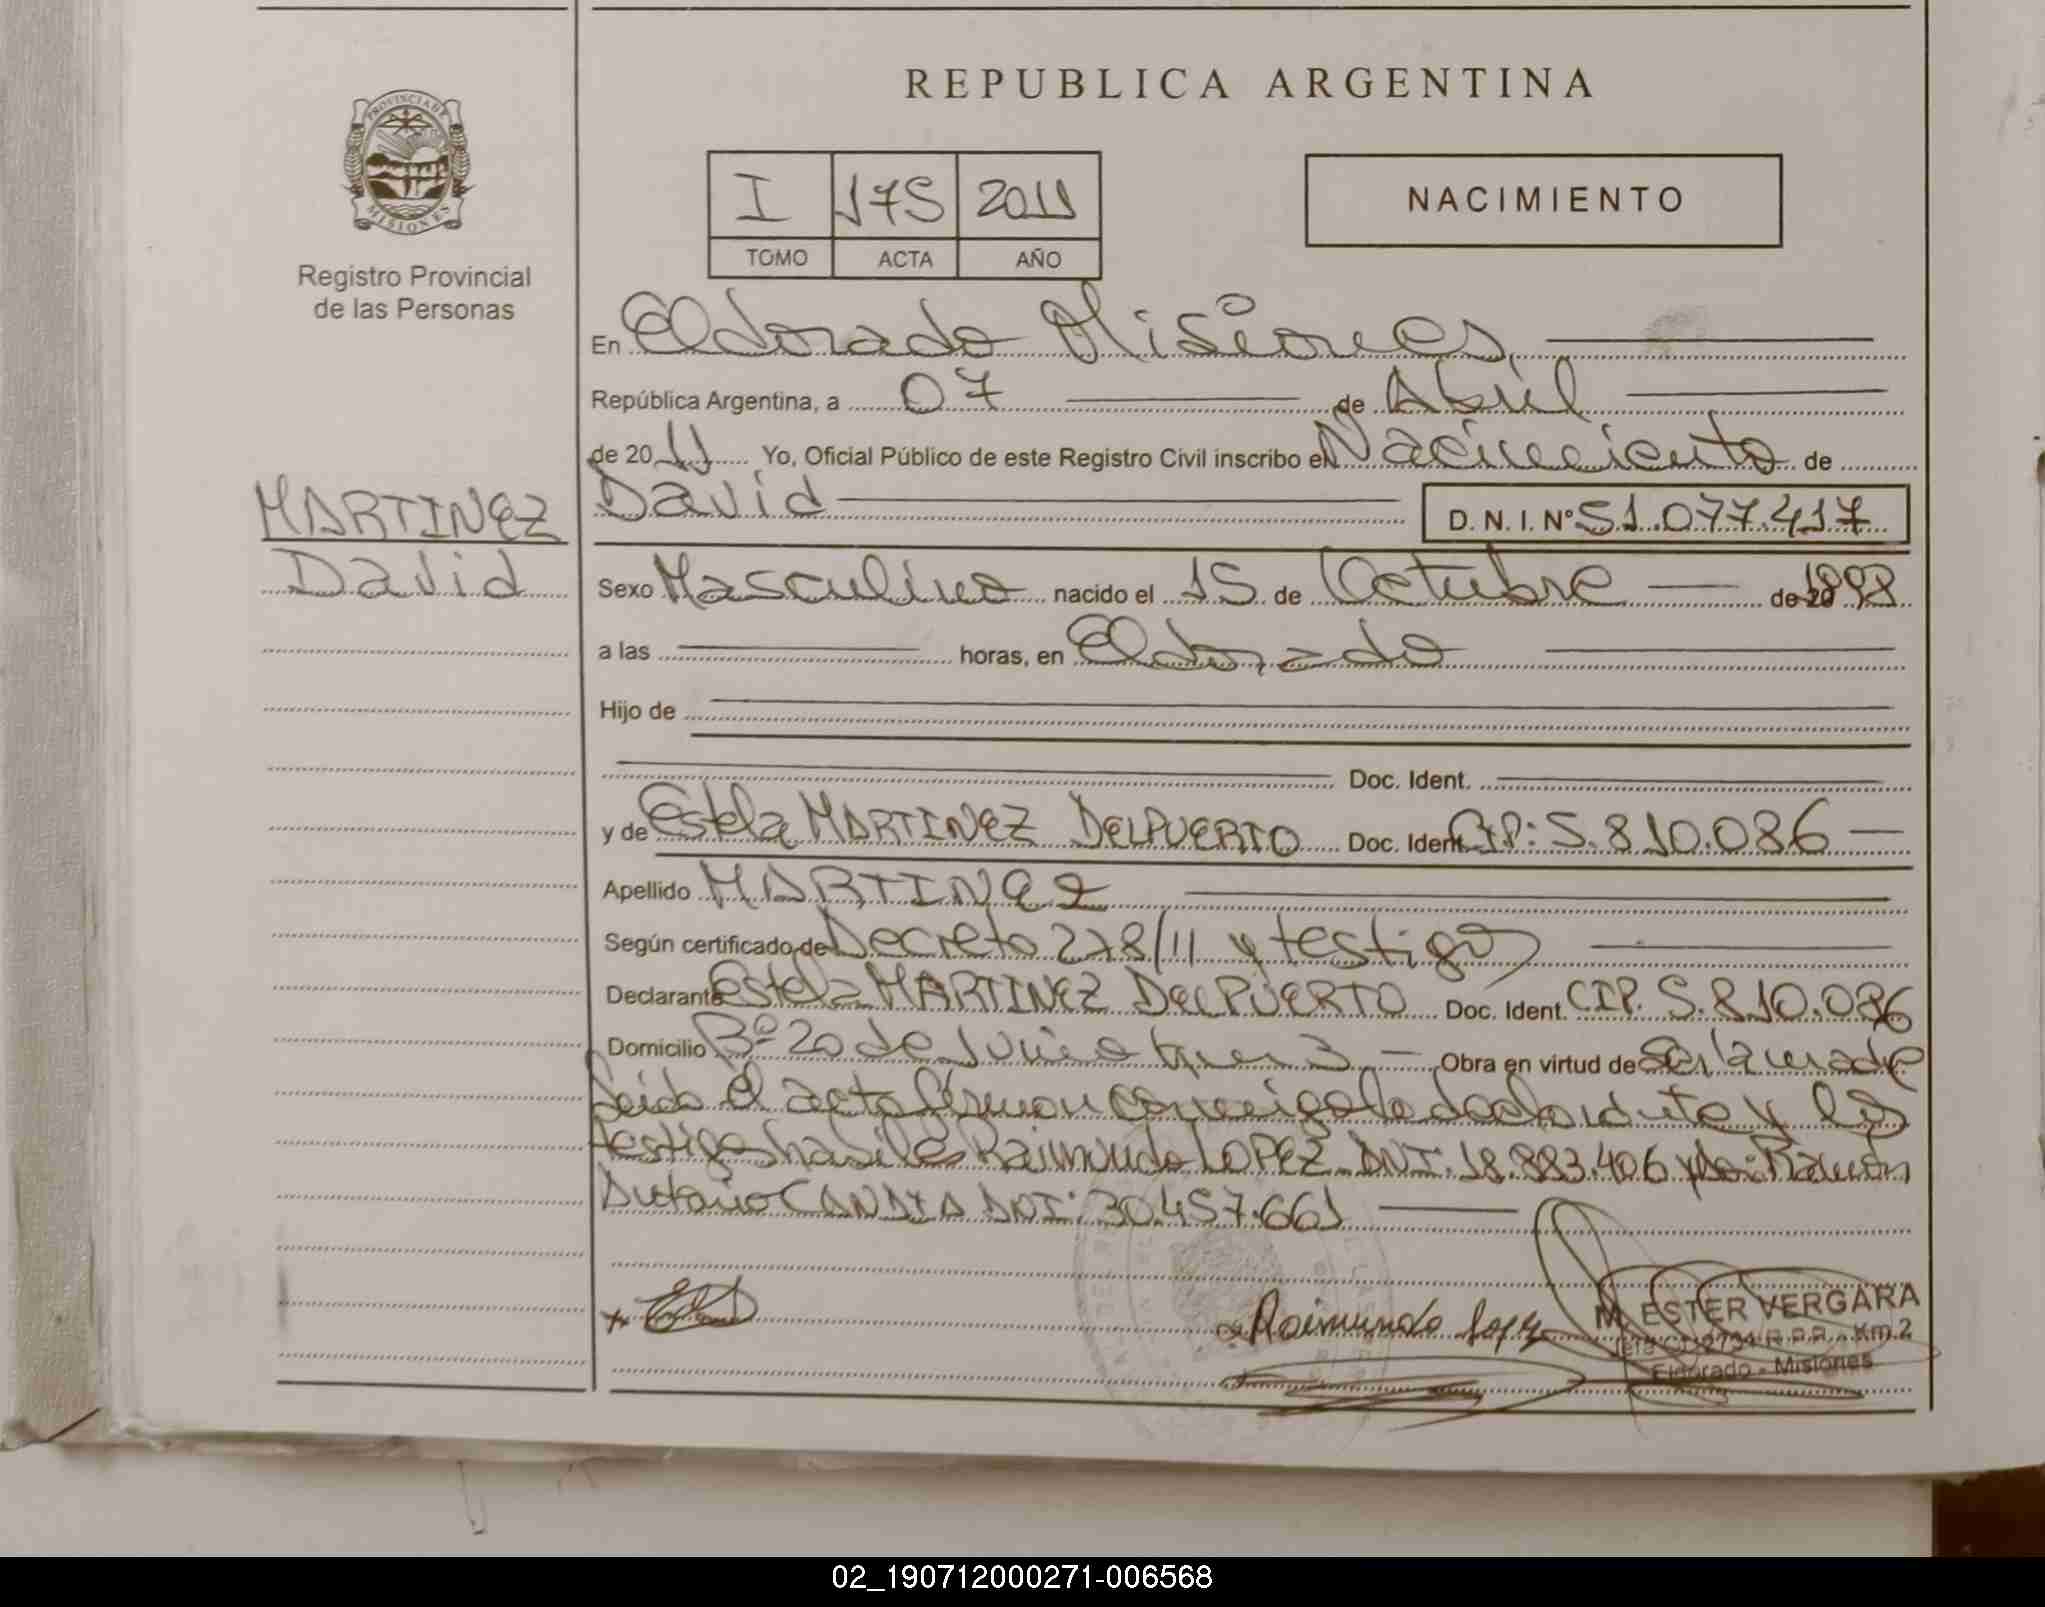 REPUBLICA ARGENTINA
PROVINCIA DE
MISIONES
Registro Provincial
de las Personas
I 175 2011
TOMO ACTA AÑO
NACIMIENTO
En Eldorado Misiones
República Argentina, a 07 de Abril
de 2011 Yo, Oficial Público de este Registro Civil inscribo el Nacimiento de
MARTINEZ
David
David D. N. I. Nº 51.077.417
Sexo Masculino nacido el 15 de Octubre de 1998
a las horas, en Eldorado
Hijo de
Doc. Ident.
y de Estela MARTINEZ DELPUERTO Doc. Ident. CIP: 5.810.086
Apellido MARTINEZ
Según certificado de Decreto 278/11 y testigos
Declarante Estela MARTINEZ DELPUERTO Doc. Ident. CIP. 5.810.086
Domicilio Bº 20 de Junio 3 Obra en virtud de Ser la madre
Leido el acta firman conmigo la declarante y los
testigos habiles Raimundo LOPEZ DNI: 18.883.406 Ramón
Antonio CANDIA DNI: 30.457.661
Raimundo Lopez
M. ESTER VERGARA
Jefa R.P.P. - Km.2
Eldorado - Misiones
02_190712000271-006568